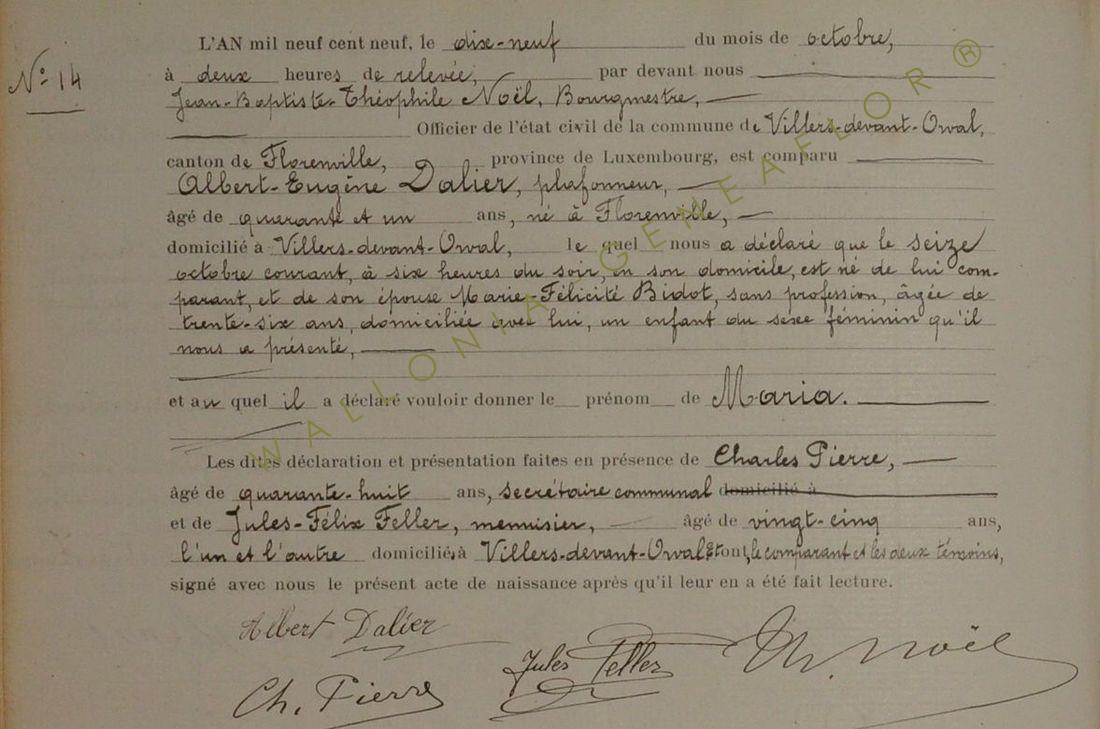 L'AN mil neuf cent neuf, le dix-neuf du mois de octobre,
N° 14
à deux heures de relevée, par devant nous
Jean-Baptiste-Théophile Noël, Bourgmestre,
Officier de l'état civil de la commune de Villers-devant-Orval,
canton de Florenville, province de Luxembourg, est comparu
Albert-Eugène Dalier, plafonneur,
âgé de quarante et un ans, né à Florenville,
domicilié à Villers-devant-Orval, le quel nous a déclaré que le seize
octobre courant, à six heures du soir, en son domicile, est né de lui com-
parant, et de son épouse Marie-Félicité Bidot, sans profession, âgée de
trente-six ans, domiciliée avec lui, un enfant du sexe féminin qu'il
nous a présenté,
et au quel il a déclaré vouloir donner le prénom de Maria.
Les dites déclaration et présentation faites en présence de Charles Pierre,
âgé de quarante-huit ans, secrétaire communal domicilié à
et de Jules-Félix Feller, menuisier, âgé de vingt-cinq ans,
l'un et l'autre domiciliés à Villers-devant-Orval & ont, le comparant et les deux témoins,
signé avec nous le présent acte de naissance après qu'il leur en a été fait lecture.
Albert Dalier
Jules Feller
Th. Noël
Ch. Pierre
WALLONIA GENEAFLOR ®